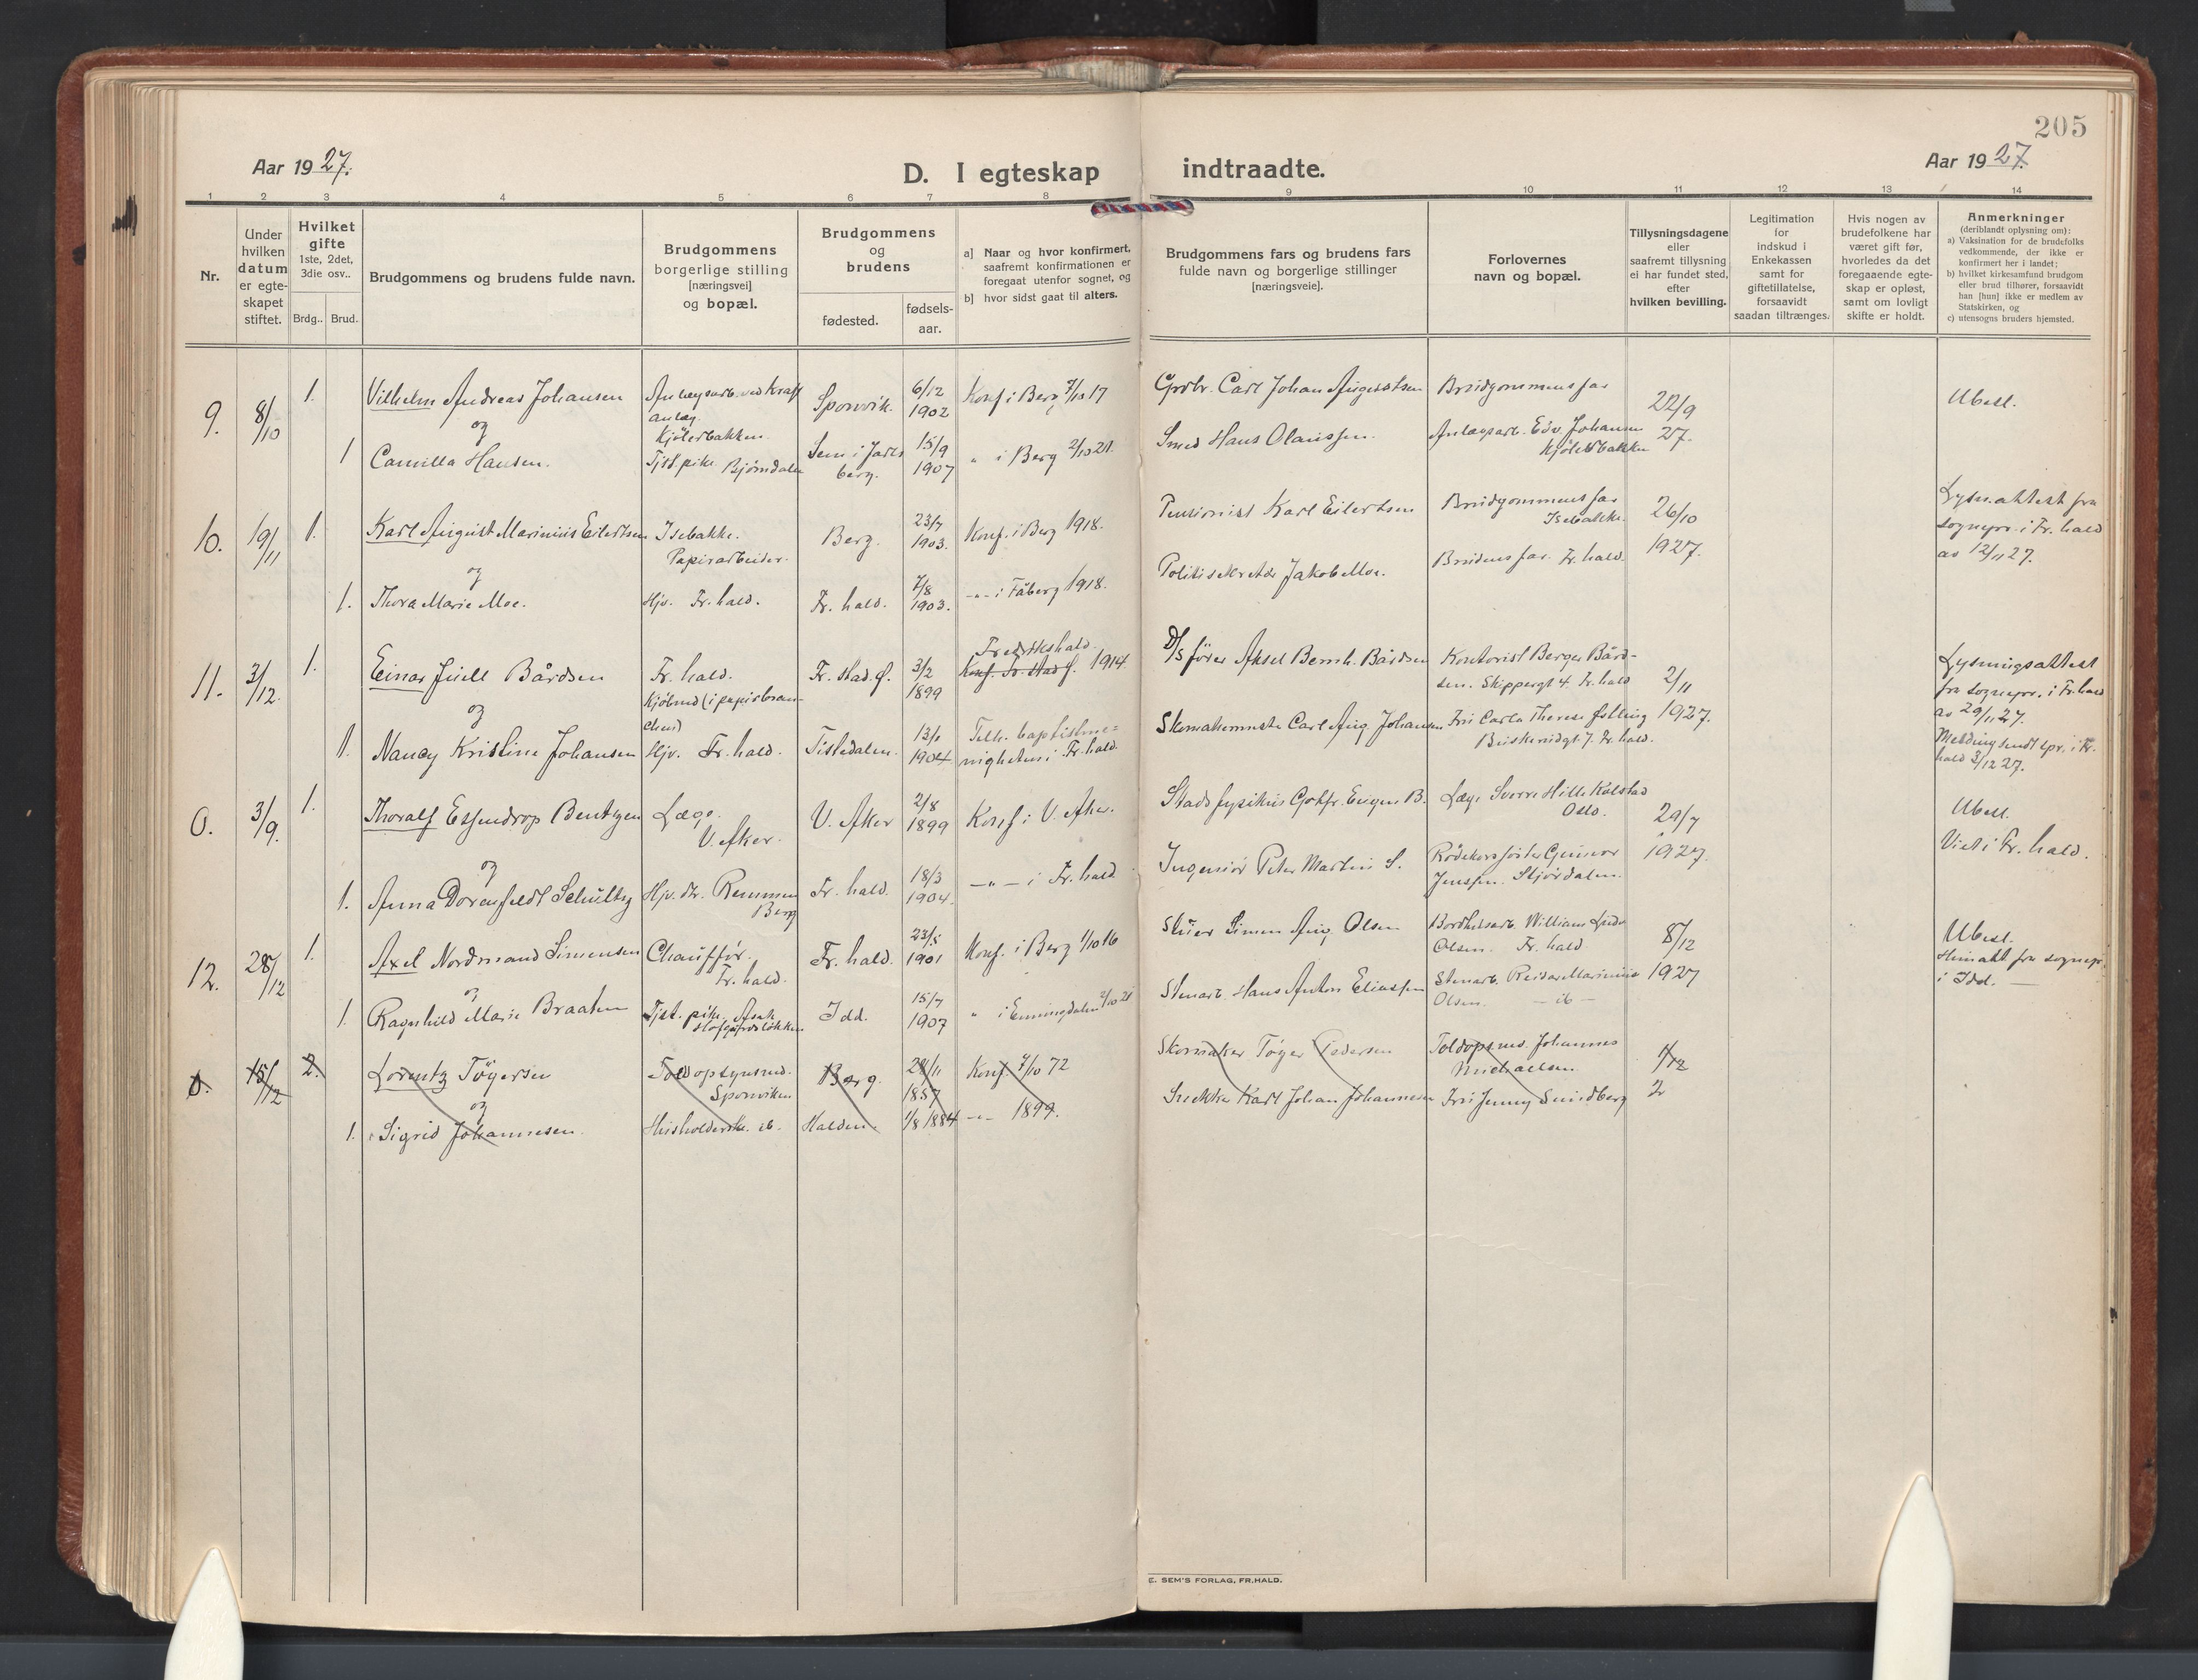 205
Aar 1927.
D. I egteskap indtraadte.
Aar 1927.
1 2 3 4 5 6 7 8 9 10 11 12 13 14
Nr.
Under hvilken datum er egte-skapet stiftet.
Hvilket gifte 1ste, 2det, 3die osv..
Brdg.. Brud.
Brudgommens og brudens fulde navn.
Brudgommens borgerlige stilling [næringsvei] og bopæl.
Brudgommens og brudens
fødested.
fødsels-aar.
a] Naar og hvor konfirmert, saafremt konfirmationen er foregaat utenfor sognet, og
b] hvor sidst gaat til alters.
Brudgommens fars og brudens fars fulde navn og borgerlige stillinger [næringsveie].
Forlovernes navn og bopæl.
Tillysningsdagene eller saafremt tillysning ei har fundet sted, efter hvilken bevilling.
Legitimation for indskud i Enkekassen samt for giftetillatelse, forsaavidt saadan tiltrænges.
Hvis nogen av brudefolkene har været gift før, hvorledes da det foregaaende egte-skap er opløst, samt om lovligt skifte er holdt.
Anmerkninger
(deriblandt oplysning om):
a) Vaksination for de brudefolks vedkommende, der ikke er konfirmert her i landet;
b) hvilket kirkesamfund brudgom eller brud tilhører, forsaavidt han [hun] ikke er medlem av Statskirken, og
c) utensogns bruders hjemsted.
9. 8/10 1. Vilhelm Andreas Johansen Anlægsarb. ved Kraft anlæg Kjølerbakken. Sponvik. 6/12 1902 Konf i Berg 7/10 17 Grdbr. Carl Johan Augustsen Brudgommens far 22/9 27. Ubesl.
og
1 Camilla Hansen. Tjst.pike Bjørndalen Sem i Jarlsberg. 15/9 1907 " i Berg 2/10 21. Smed Hans Olaussen. Anlægsarb. Edv. Johansen Kjølerbakken
10. 19/11 1. Karl August Marinius Eilertsen Isebakke. Papirarbeider. Berg. 23/7 1903. Konf. i Berg 1918. Pensionist Karl Eilertsen Brudgommens far Isebakke. 26/10 1927. Lysn.attest fra sognepr. i Fr.hald av 12/11 27.
og
1. Thora Marie Moe. Hjv. Fr.hald. Fr. hald. 7/8 1903. -"- i Fåberg 1918. Politisekretær Jakob Moe. Brudens far. Fr.hald.
11. 3/12. 1. Einar Juell Bårdsen Fr. hald. Kjøbmd (i papirbranchen) Fr. stad. G. 3/2 1899 Fredrikshald. Konf. Fr.stad G. 1914 D/S fører Aksel Bernh. Bårdsen Kontorist Berger Bårdsen. Skippergt 4. Fr.hald 2/11 1927. Lysningsattest fra sognepr. i Fr.hald av 29/11 27. Melding sendt spr. i Fr.hald 3/12 27.
og
1. Nancy Kristine Johansen Hjv. Fr. hald. Tistedalen. 13/1 1904 Tilh. baptistmenigheten i Fr.hald. Skomakermster Carl Aug. Johansen Fru Carla Therese Følling Buskerudgt. 7. Fr. hald.
0. 3/9. 1. Thoralf Essendrop Bentzen Læge. V. Aker. V. Aker 2/8 1899 Konf i V. Aker. Stadsfysikus Gotfr. Eugen B. Læge Sverre Hille Kolstad Oslo. 29/7 1927. Ubesl. Viet i Fr. hald.
og
1. Anna Dorenfeldt Schultz Hjv. dtr. Remmen Berg Fr. hald. 18/3 1904. -"- i Fr. hald Ingeniør Peter Martin S. Rødekorssøster Gunvor Jenssen. Stjørdalen.
12. 28/12 1. Axel Nordmand Simensen Chauffør. Fr. hald. Fr. hald. 23/5 1901 Konf. i Berg 1/10 16 Stuer Simen Aug. Olsen William Olsen. Fr. hald 8/12 1927 Ubesl. i Idd.
og
1. Ragnhild Marie Braaten Tjst. pike. Idd. 15/7 1907 " i Enningdalen 2/10 21 Stenarb. Hans Anton Eliassen Stenarb. Reidar Marinius Olsen. - ib -
0. 15/12 2. Lorentz Tøgersen Toldopsynsmd. Sponviken Berg. 28/11 1857 Konf. 7/10 72 Skomaker Tøger Pedersen Toldopsmd. Johannes Michaelsen 1/12 2
og
1. Sigrid Johannesen. Husholderske. ib. Halden. 1/8 1884 -"- 1899. Snekker Karl Johan Johannesen Fru Jenny Sundberg
E. SEM'S FORLAG, FR.HALD.